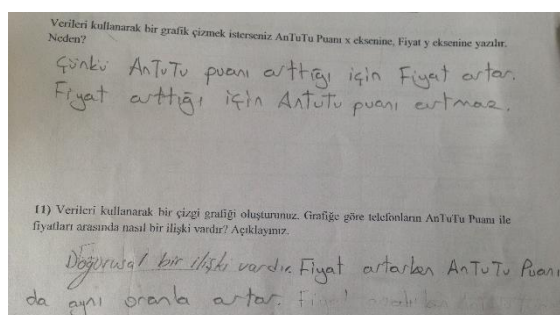 Verileri kullanarak bir grafik çizmek isterseniz AnTuTu Puanı x eksenine, Fiyat y eksenine yazılır.
Neden?
Çünkü AnTuTu puanı arttığı için Fiyat artar.
Fiyat arttığı için AnTuTu puanı artmaz.
11) Verileri kullanarak bir çizgi grafiği oluşturunuz. Grafiğe göre telefonların AnTuTu Puanı ile
fiyatları arasında nasıl bir ilişki vardır? Açıklayınız.
Doğurusal bir ilişki vardır. Fiyat artarken AnTuTu Puanı
da aynı oranla artar.